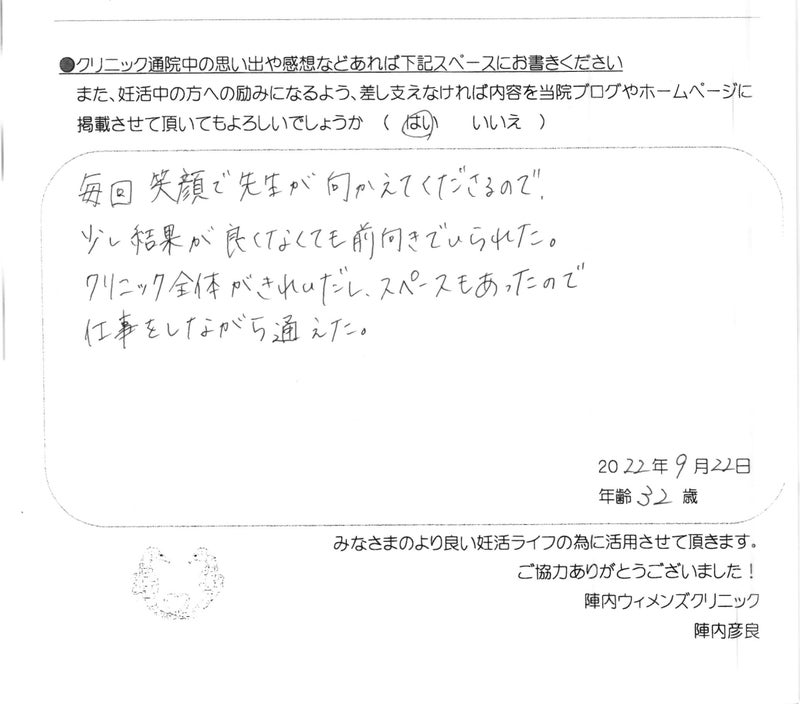 ●クリニック通院中の思い出や感想などあれば下記スペースにお書きください
また、妊活中の方への励みになるよう、差し支えなければ内容を当院ブログやホームページに
掲載させて頂いてもよろしいでしょうか （ はい いいえ ）
毎回 笑顔で先生が向かえてくださるので、
少し結果が良くなくても前向きでいられた。
クリニック全体がきれいだし、スペースもあったので
仕事をしながら通えた。
2022年9月22日
年齢 32 歳
みなさまのより良い妊活ライフの為に活用させて頂きます。
ご協力ありがとうございました！
陣内ウィメンズクリニック
陣内彦良